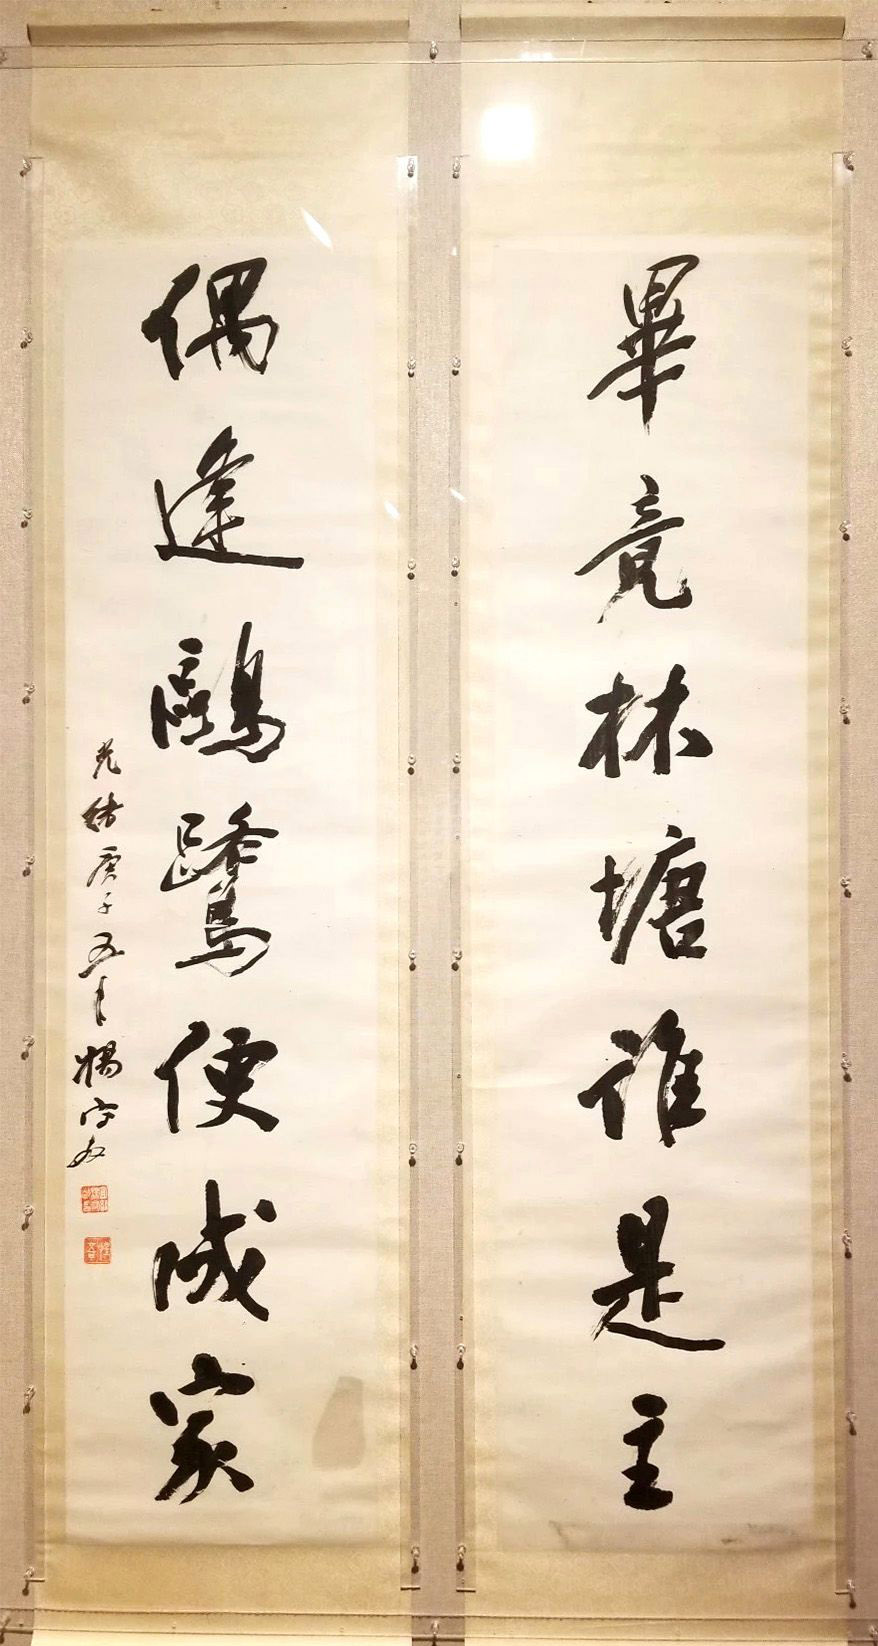 畢竟林塘誰是主
偶逢鷗鷺便成家
光緒庚子五月楊守敬